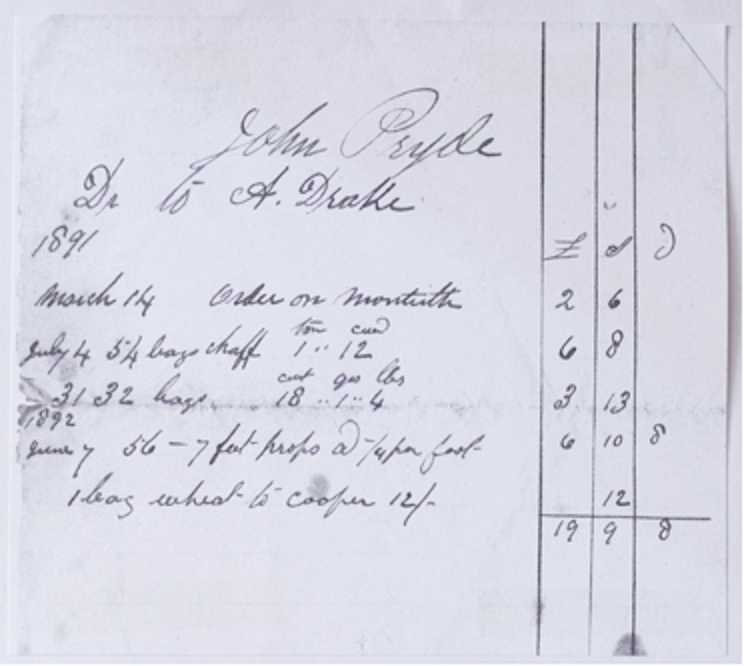 John Pryde
Dr to A. Drake
1891 £ s D
March 14 Order on Monteith 2 6
ton cwt
July 4 54 bags chaff 1 " 12 6 8
cwt qrs lbs
31 32 bags 18 " 1 " 4 3 13
1892
June 7 56 – 7 feet props @ -/4 per foot 6 10 8
1 bag wheat to Cooper 12/- 12
19 9 8